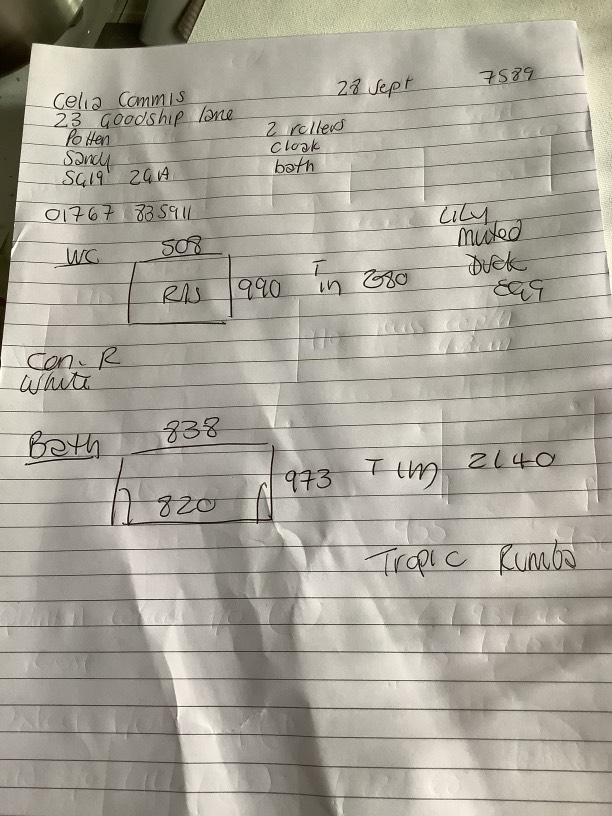 Celia Commis 28 Sept 7589
23 Goodship lane
Potten 2 rollers
Sandy cloak
SG19 2GA bath
01767 835911
WC 508 Lily
R/S 990 T in Muted
Duck
Egg
Con. R
White
Bath 838
820 973 T (m) 2140
Tropic Rumba